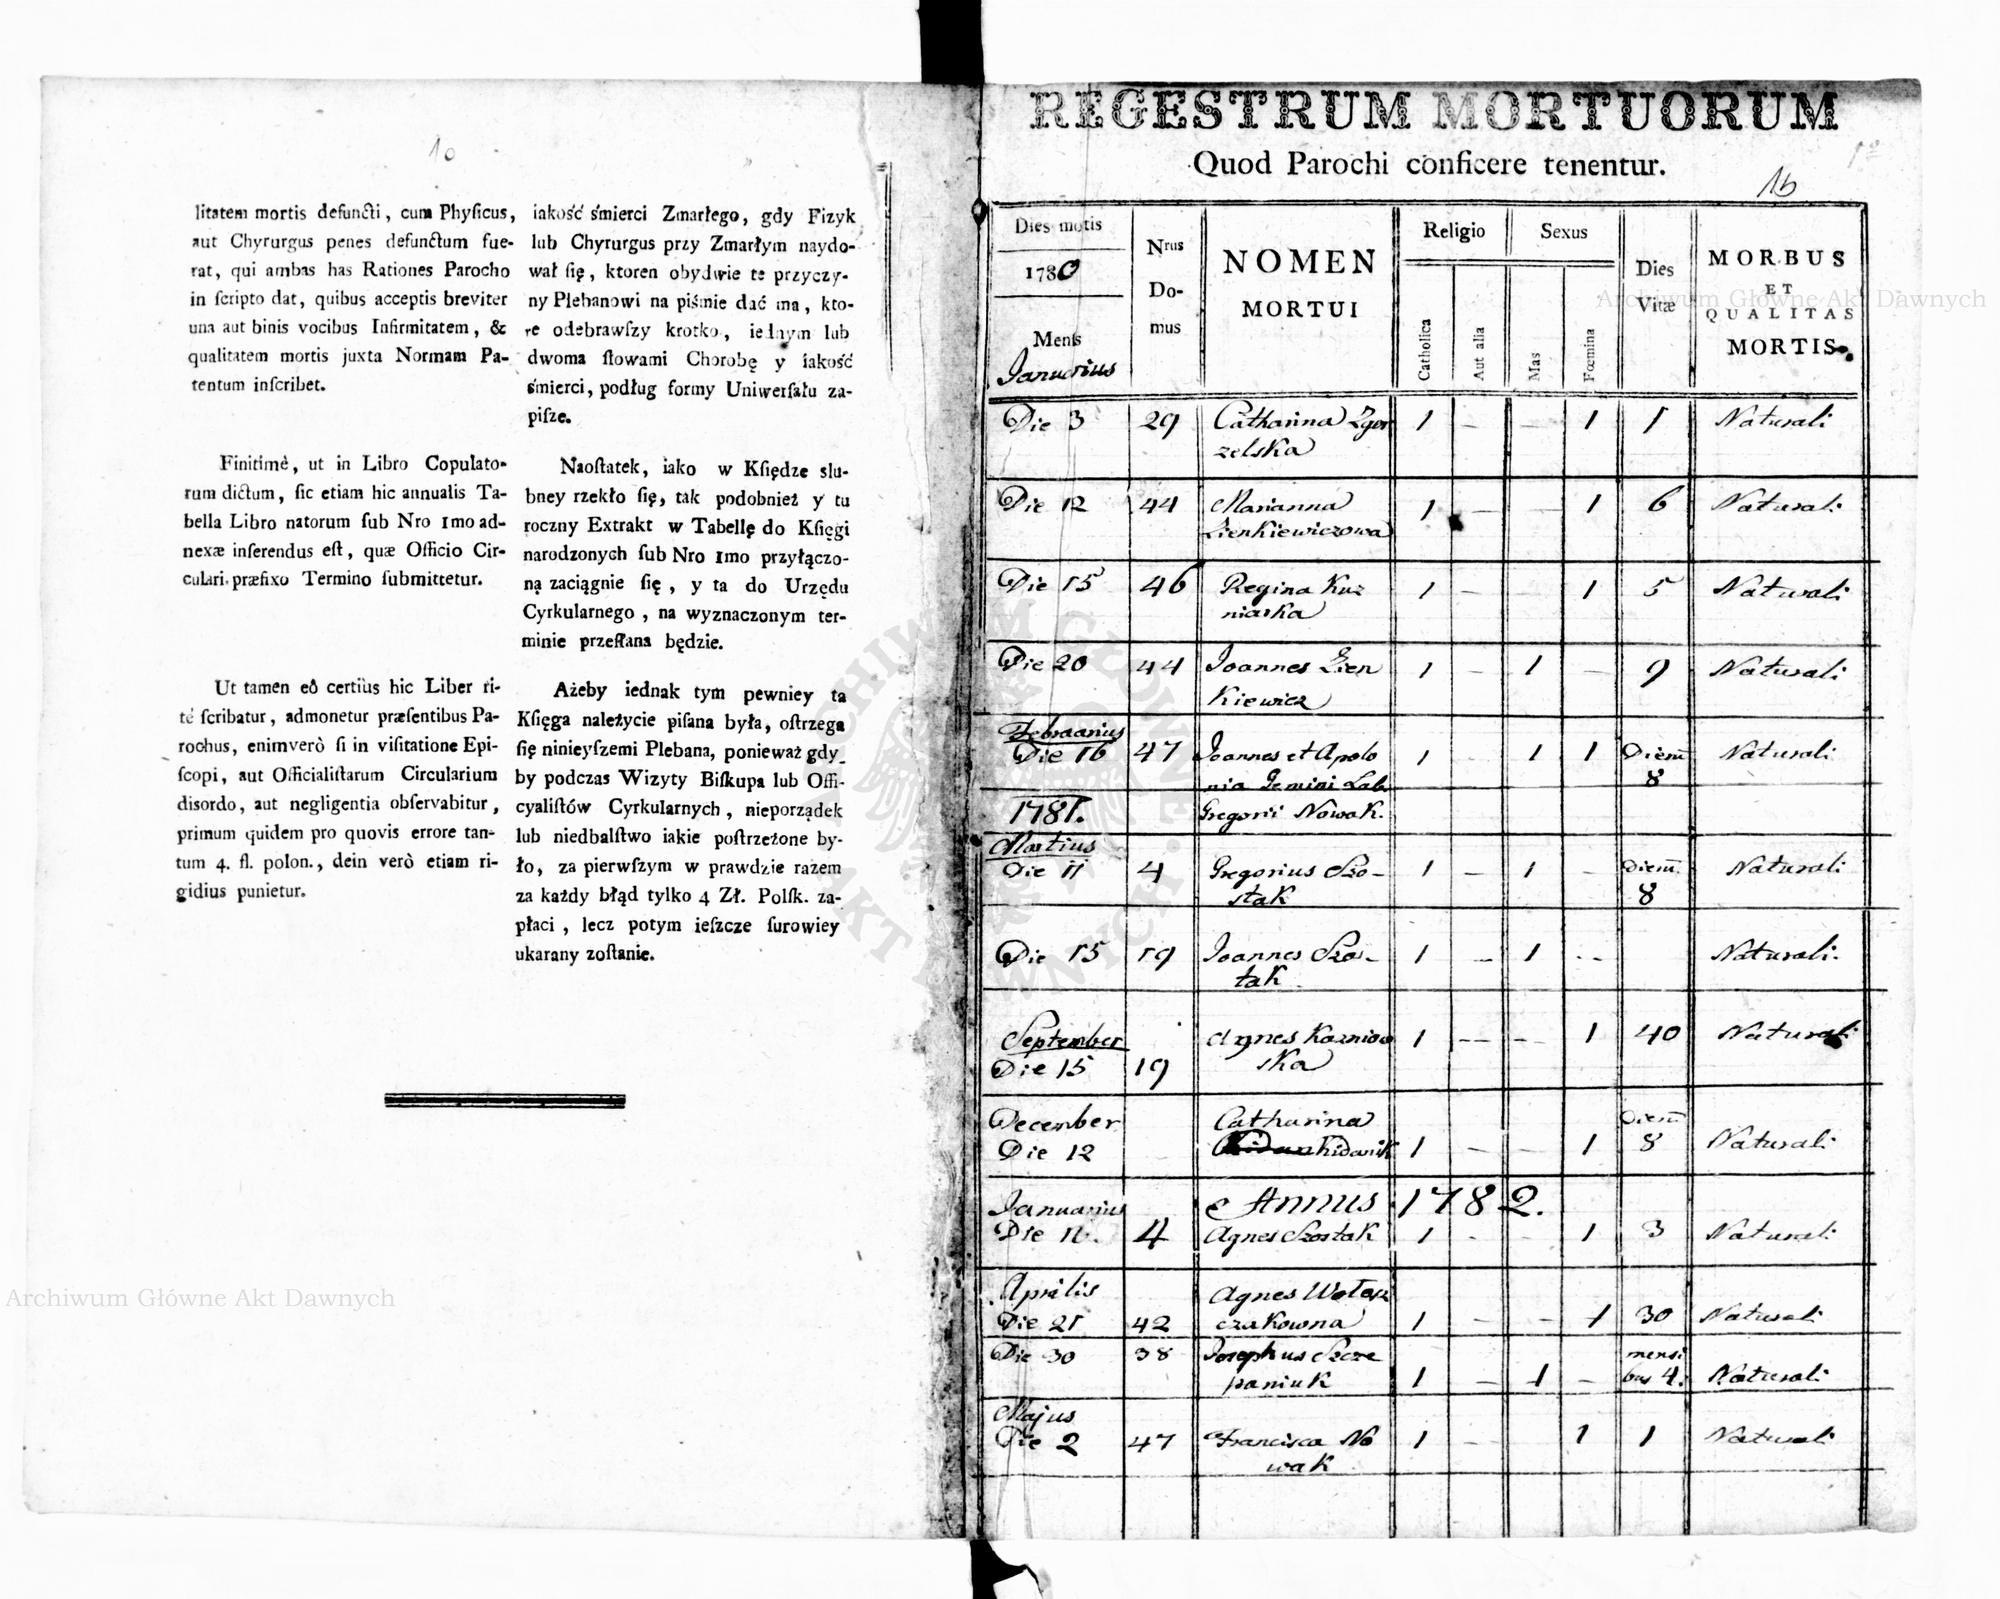 10
litatem mortis defuncti, cum Phyſicus,
aut Chyrurgus penes defunctum fue-
rat, qui ambas has Rationes Parocho
in ſcripto dat, quibus acceptis breviter
una aut binis vocibus Infirmitatem, &
qualitatem mortis juxta Normam Pa-
tentum inſcribet.
Finitimè, ut in Libro Copulato-
rum dictum, ſic etiam hic annualis Ta-
bella Libro natorum ſub Nro 1mo ad-
nexæ inſerendus eſt, quæ Officio Cir-
culari præfixo Termino ſubmittetur.
Ut tamen eò certiùs hic Liber ri-
tè ſcribatur, admonetur præſentibus Pa-
rochus, enimverò ſi in viſitatione Epi-
ſcopi, aut Officialiſtarum Circularium
disordo, aut negligentia obſervabitur,
primum quidem pro quovis errore tan-
tum 4. fl. polon., dein verò etiam ri-
gidius punietur.
iakość śmierci Zmarłego, gdy Fizyk
lub Chyrurgus przy Zmarłym naydo-
wał się, ktoren obydwie te przyczy-
ny Plebanowi na piśmie dać ma, kto-
re odebrawſzy krotko, iednym lub
dwoma ſłowami Chorobę y iakość
śmierci, podług formy Uniwerſału za-
piſze.
Naoſtatek, iako w Kſiędze slu-
bney rzekło ſię, tak podobnież y tu
roczny Extrakt w Tabellę do Kſięgi
narodzonych ſub Nro 1mo przyłączo-
ną zaciągnie ſię, y ta do Urzędu
Cyrkularnego, na wyznaczonym ter-
minie przeſłana będzie.
Ażeby iednak tym pewniey ta
Kſięga należycie piſana była, oſtrzega
ſię ninieyſzemi Plebana, ponieważ gdy-
by podczas Wizyty Biſkupa lub Offi-
cyaliſtów Cyrkularnych, nieporządek
lub niedbalſtwo iakie poſtrzeżone by-
ło, za pierwſzym w prawdzie razem
za każdy błąd tylko 4 Zł. Polſk. za-
płaci, lecz potym ieſzcze ſurowiey
ukarany zoſtanie.
REGESTRUM MORTUORUM
Quod Parochi conficere tenentur.
16
Dies motis
1780
Mens
Januarius
Nrus
Do-
mus
NOMEN
MORTUI
Religio
Catholica
Aut alia
Sexus
Mas
Fœmina
Dies
Vitæ
MORBUS
ET
QUALITAS
MORTIS
Die 3 29 Catharina Zgor 1 - - 1 1 Naturali
zelska
Die 12 44 Marianna 1 - - 1 6 Naturali
Zienkiewiczowa
Die 15 46 Regina Kuz 1 - - 1 5 Naturali
niarka
Die 20 44 Joannes Zien 1 - 1 - 9 Naturali
Kiewicz
Februarius
Die 16 47 Joannes et Apolo 1 - 1 1 Dierū Naturali
nia Gemini Lab. 8
1781. Gregorii Nowak.
Martius
Die 11 4 Gregorius Szo- 1 - 1 - Dierū Naturali
stak 8
Die 15 19 Joannes Szos- 1 - 1 - - Naturali.
tak
September Agnes Kozniow 1 - - - - 1 40 Naturali
Die 15 19 ska
December Catharina Dierū
Die 12 Kidanik 1 - - 1 8 Naturali
Januarius Annus 1782.
Die 4 Agnes Szostak 1 - - 1 3 Naturali
Aprilis Agnes
Die 21 42 czakowna 1 - - 1 30 Naturali
Die 30 38 Josephus Szcze mensi
paniuk 1 - 1 - bus 4. Naturali
Majus
Die 2 47 Francisca No 1 - 1 1 Naturali
wak
Archiwum Główne Akt Dawnych
Archiwum Główne Akt Dawnych
ARCHIWUM GŁÓWNE AKT DAWNYCH